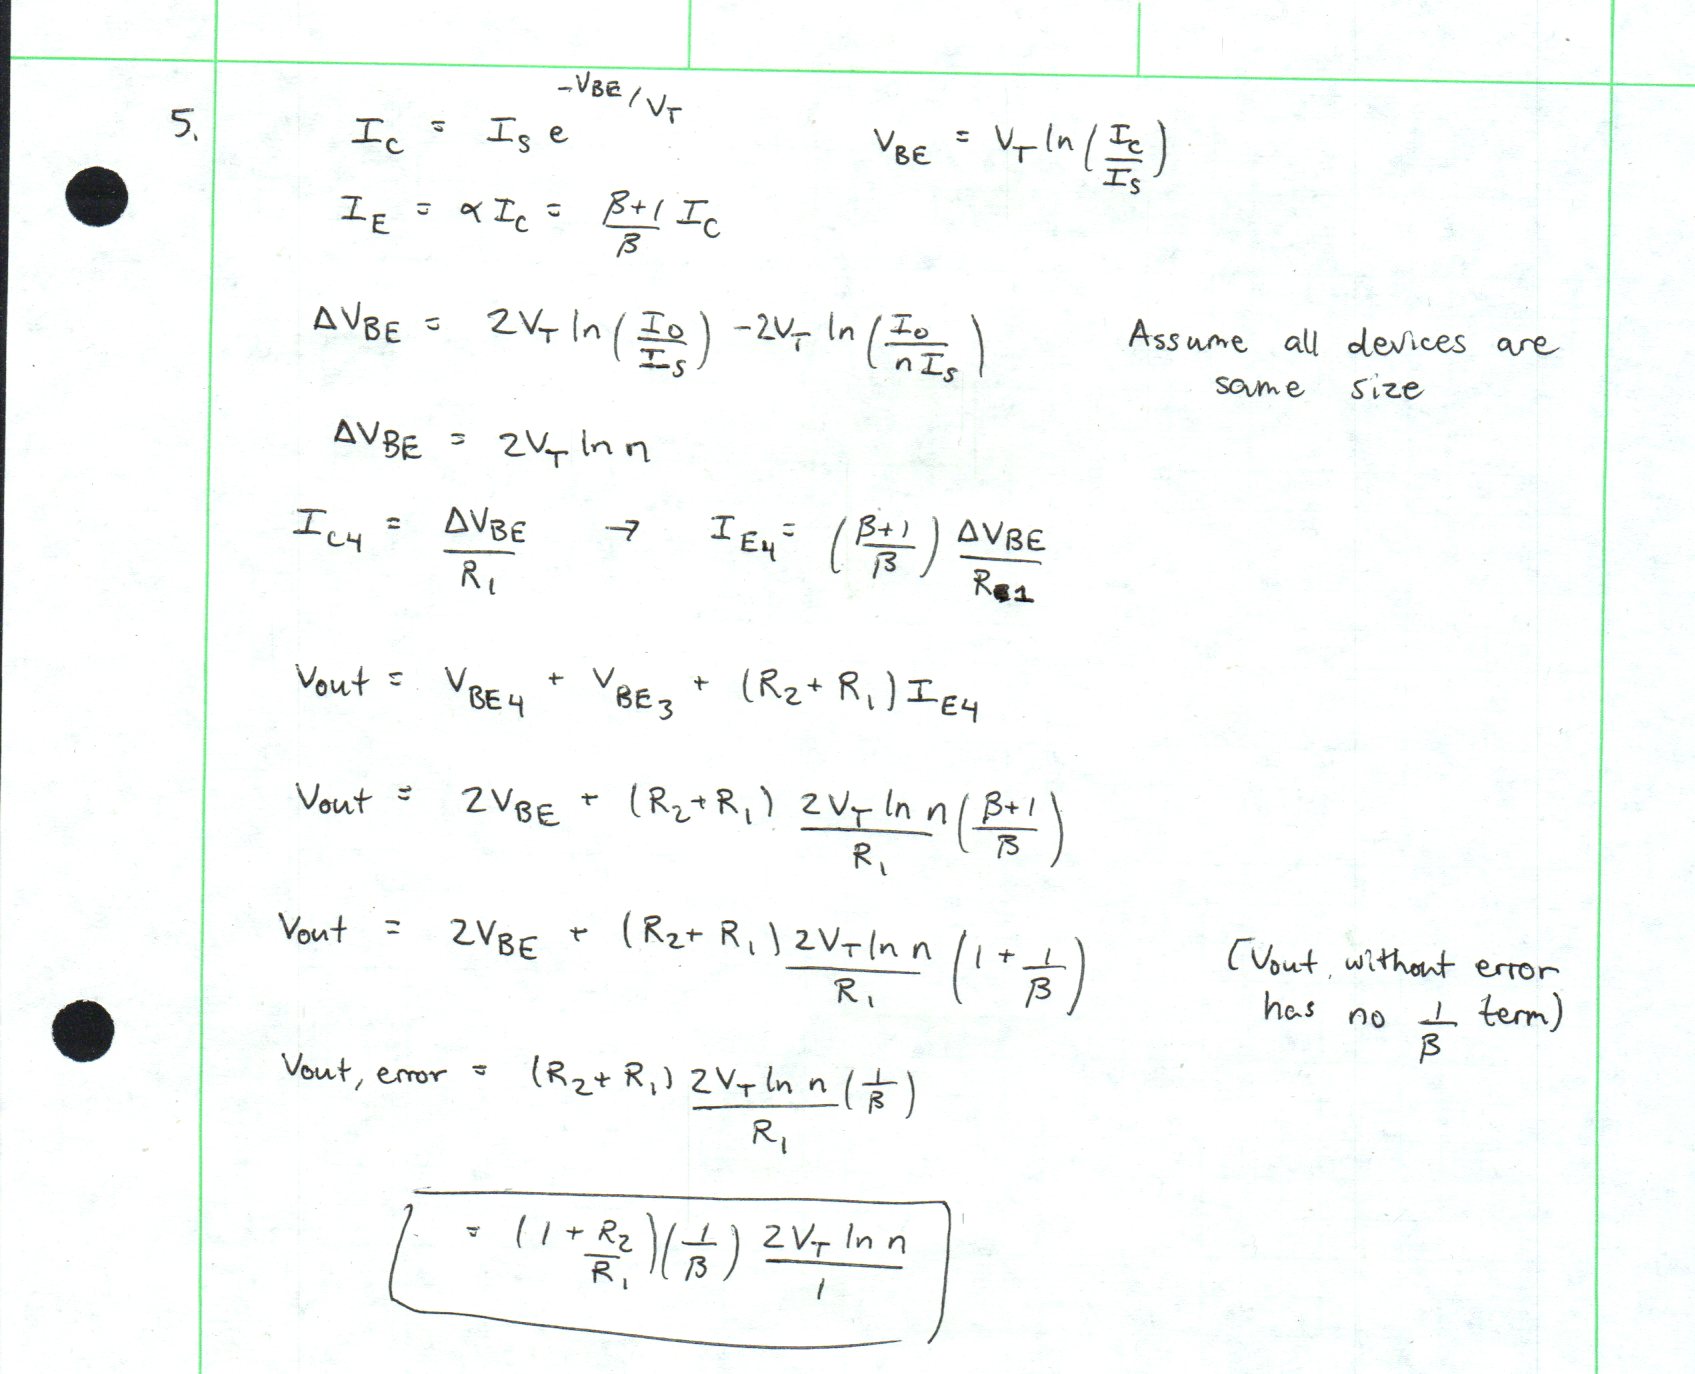 5. I_C = I_S e^{-V_BE/V_T} V_BE = V_T ln(I_C/I_S)
I_E = α I_C = (β+1)/β I_C
ΔV_BE = 2V_T ln(I_0/I_S) - 2V_T ln(I_0/(n I_S)) Assume all devices are
same size
ΔV_BE = 2V_T ln n
I_C4 = ΔV_BE/R_1 → I_E4 = ((β+1)/β) ΔV_BE/R_1
Vout = V_BE4 + V_BE3 + (R_2 + R_1) I_E4
Vout = 2V_BE + (R_2 + R_1) (2V_T ln n)/R_1 ((β+1)/β)
Vout = 2V_BE + (R_2 + R_1) (2V_T ln n)/R_1 (1 + 1/β) (Vout, without error
has no 1/β term)
Vout, error = (R_2 + R_1) (2V_T ln n)/R_1 (1/β)
= (1 + R_2/R_1)(1/β) (2V_T ln n)/1